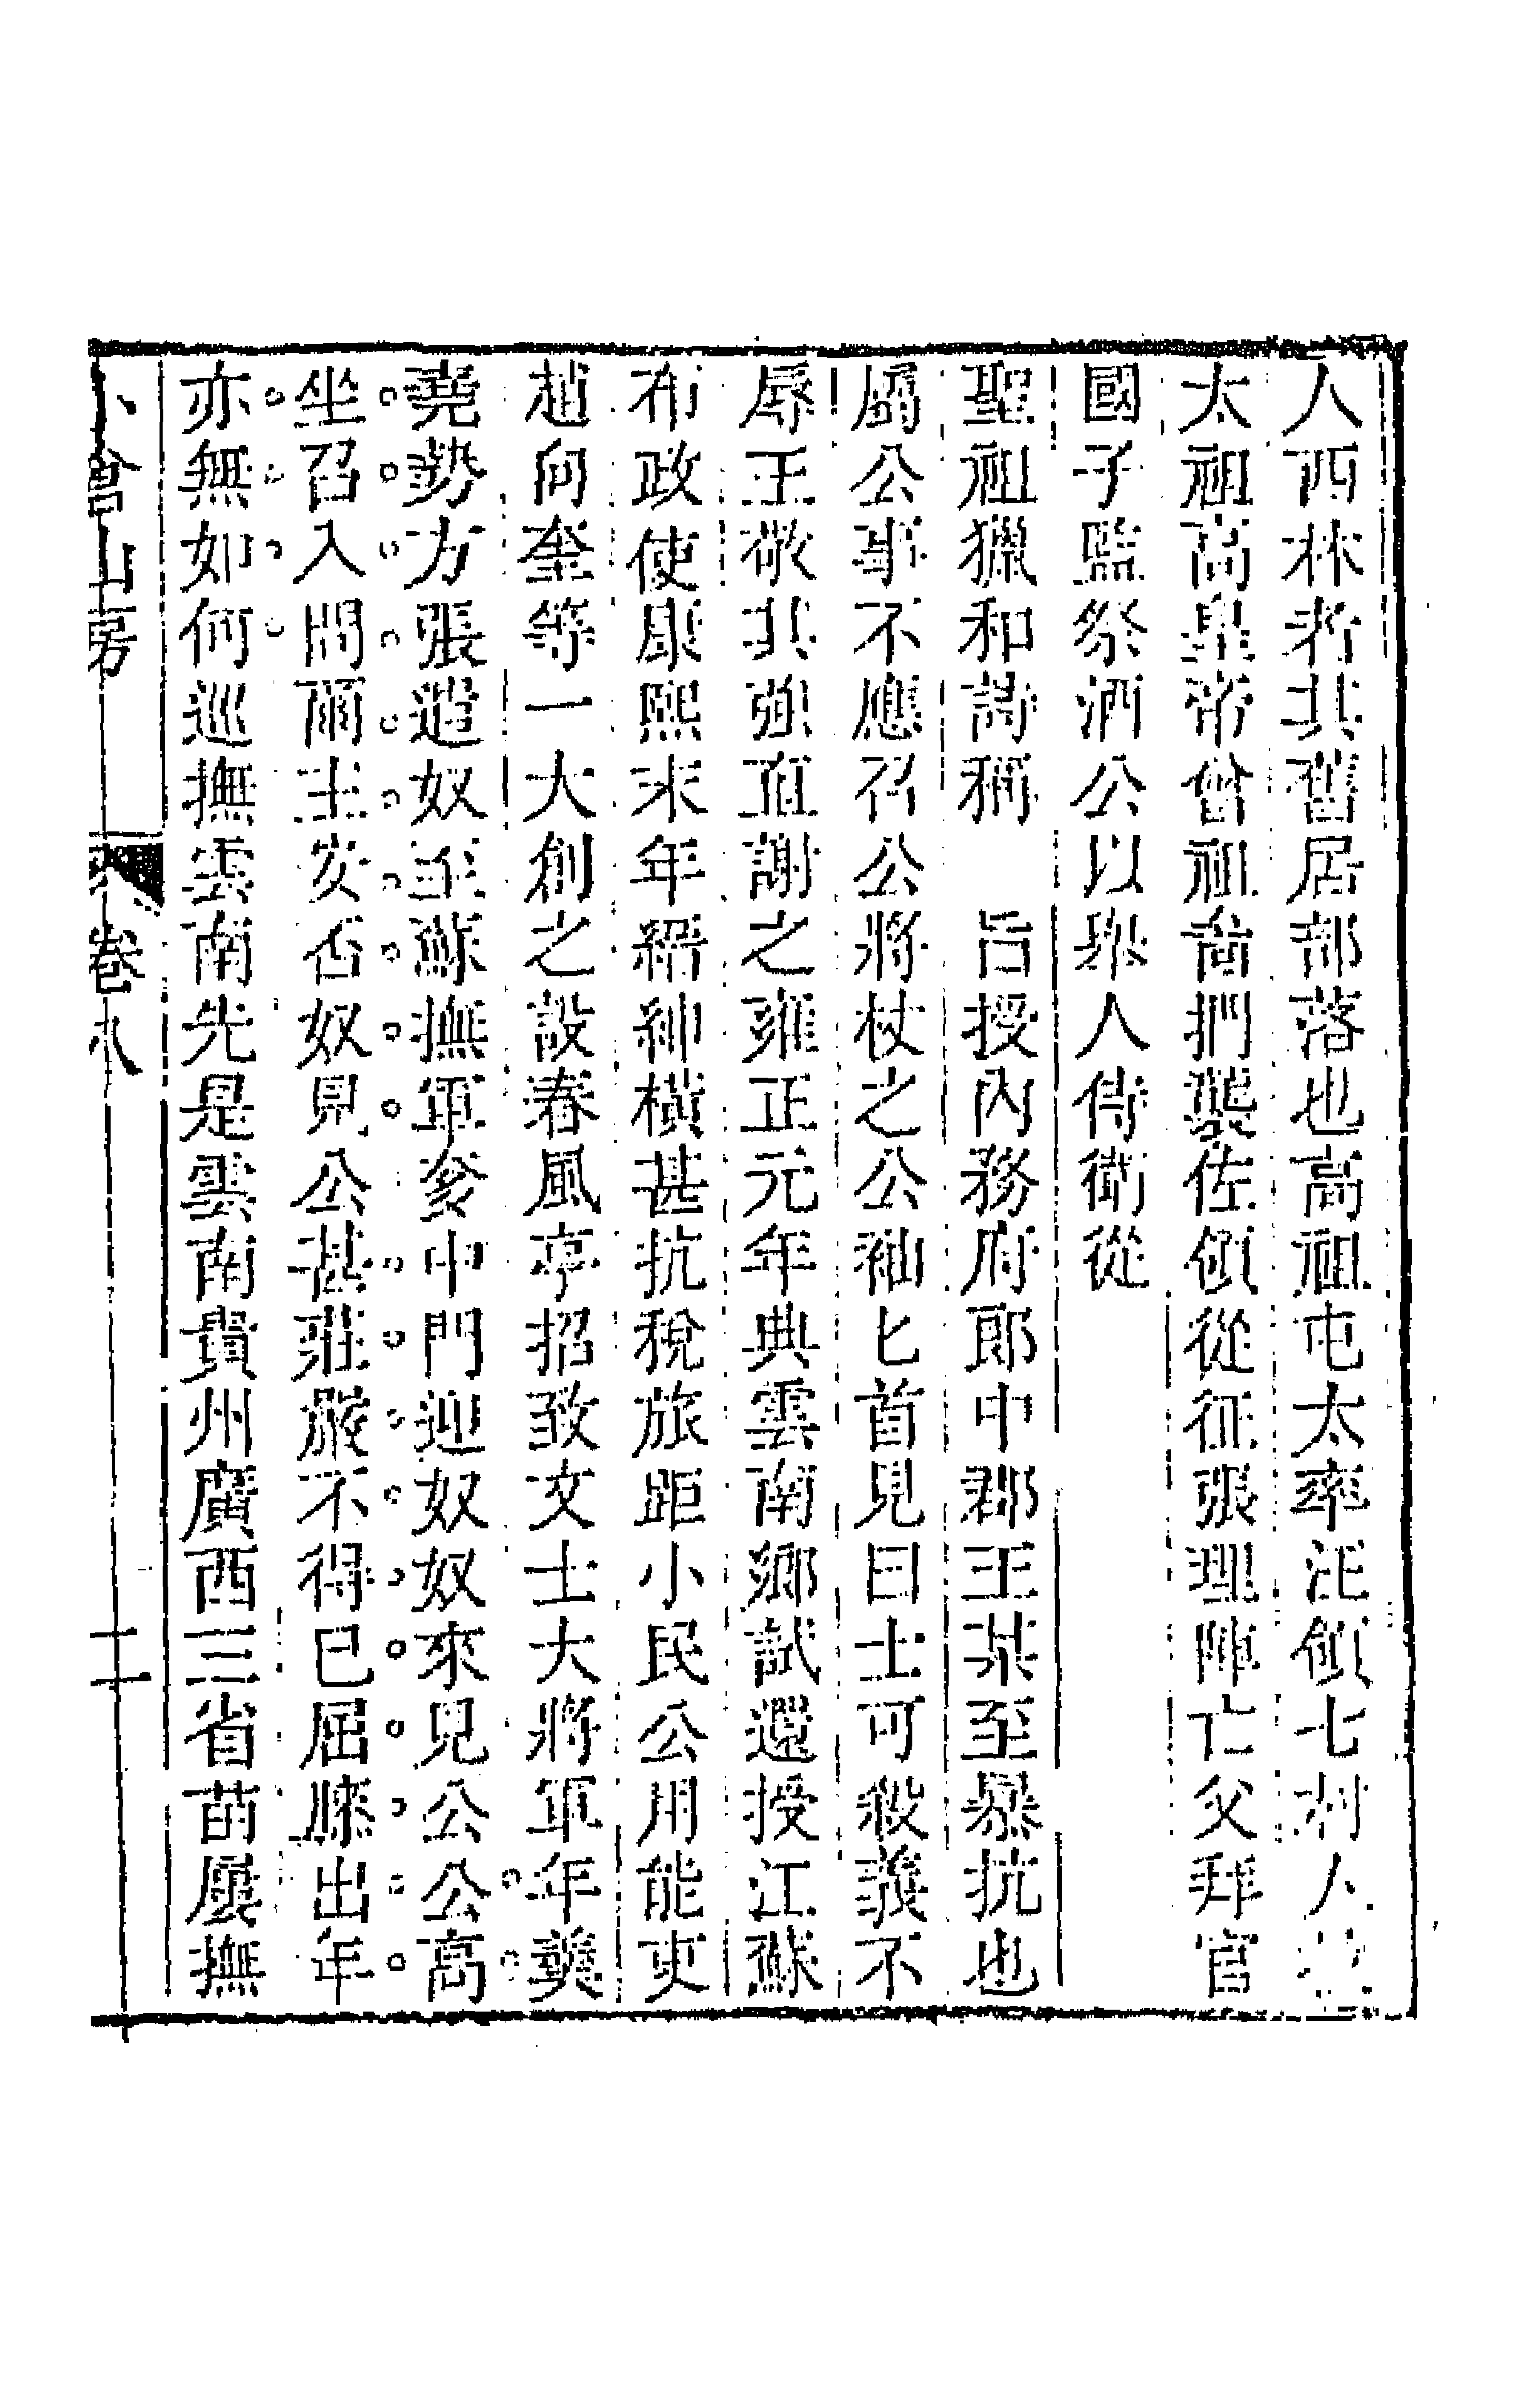 人西林者其舊居部落也高祖屯太率汪傾七村人
太祖高皇帝曾祖啚捫襲佐傾從征張理陣亡父拜官
國子監祭酒公以舉人侍衛從
聖祖獵和詩稱 旨授內務府郎中郡王某至暴抗也
屬公事不應召公將杖之公袖匕首見曰士可殺義不
辱王敬其強直謝之雍正元年典雲南鄉試還授江蘇
布政使康熙末年縉紳橫甚抗稅旅距小民公用能吏
趙向奎等一大創之設春風亭招致文士大將軍年羹
堯勢力張遣奴至蘇撫軍爹中門迎奴奴來見公公高
坐召入問爾主安否奴見公甚莊嚴不得已屈膝出年
亦無如何巡撫雲南先是雲南貴州廣西三省苗屢撫
小倉山房 卷八 十一